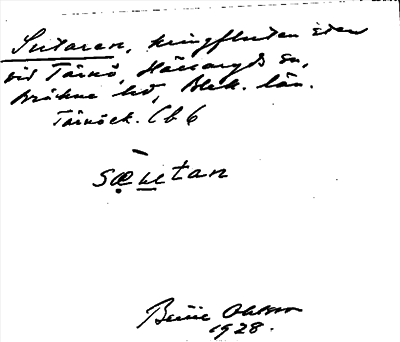 Sutaren, kringfluten sten
vid Tärnö, Hällaryds sn,
Bräkne hd, Blek. län.
Tärnö ek. Cb 6
Bertil Ohlsson
1928.